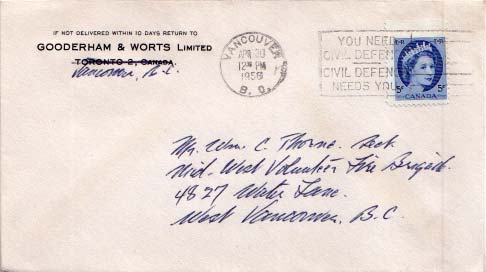 IF NOT DELIVERED WITHIN 10 DAYS RETURN TO
GOODERHAM & WORTS LIMITED
TORONTO 2, CANADA.
Vancouver, B.C.
VANCOUVER
APR 30
12 PM
1956
B. C.
YOU NEED
CIVIL DEFENCE
CIVIL DEFENCE
NEEDS YOU
5¢ 5¢
CANADA
Mr. Wm. C. Thorne. Sect.
Mid-West Volunteer Fire Brigade.
4827 Water Lane.
West Vancouver, B.C.